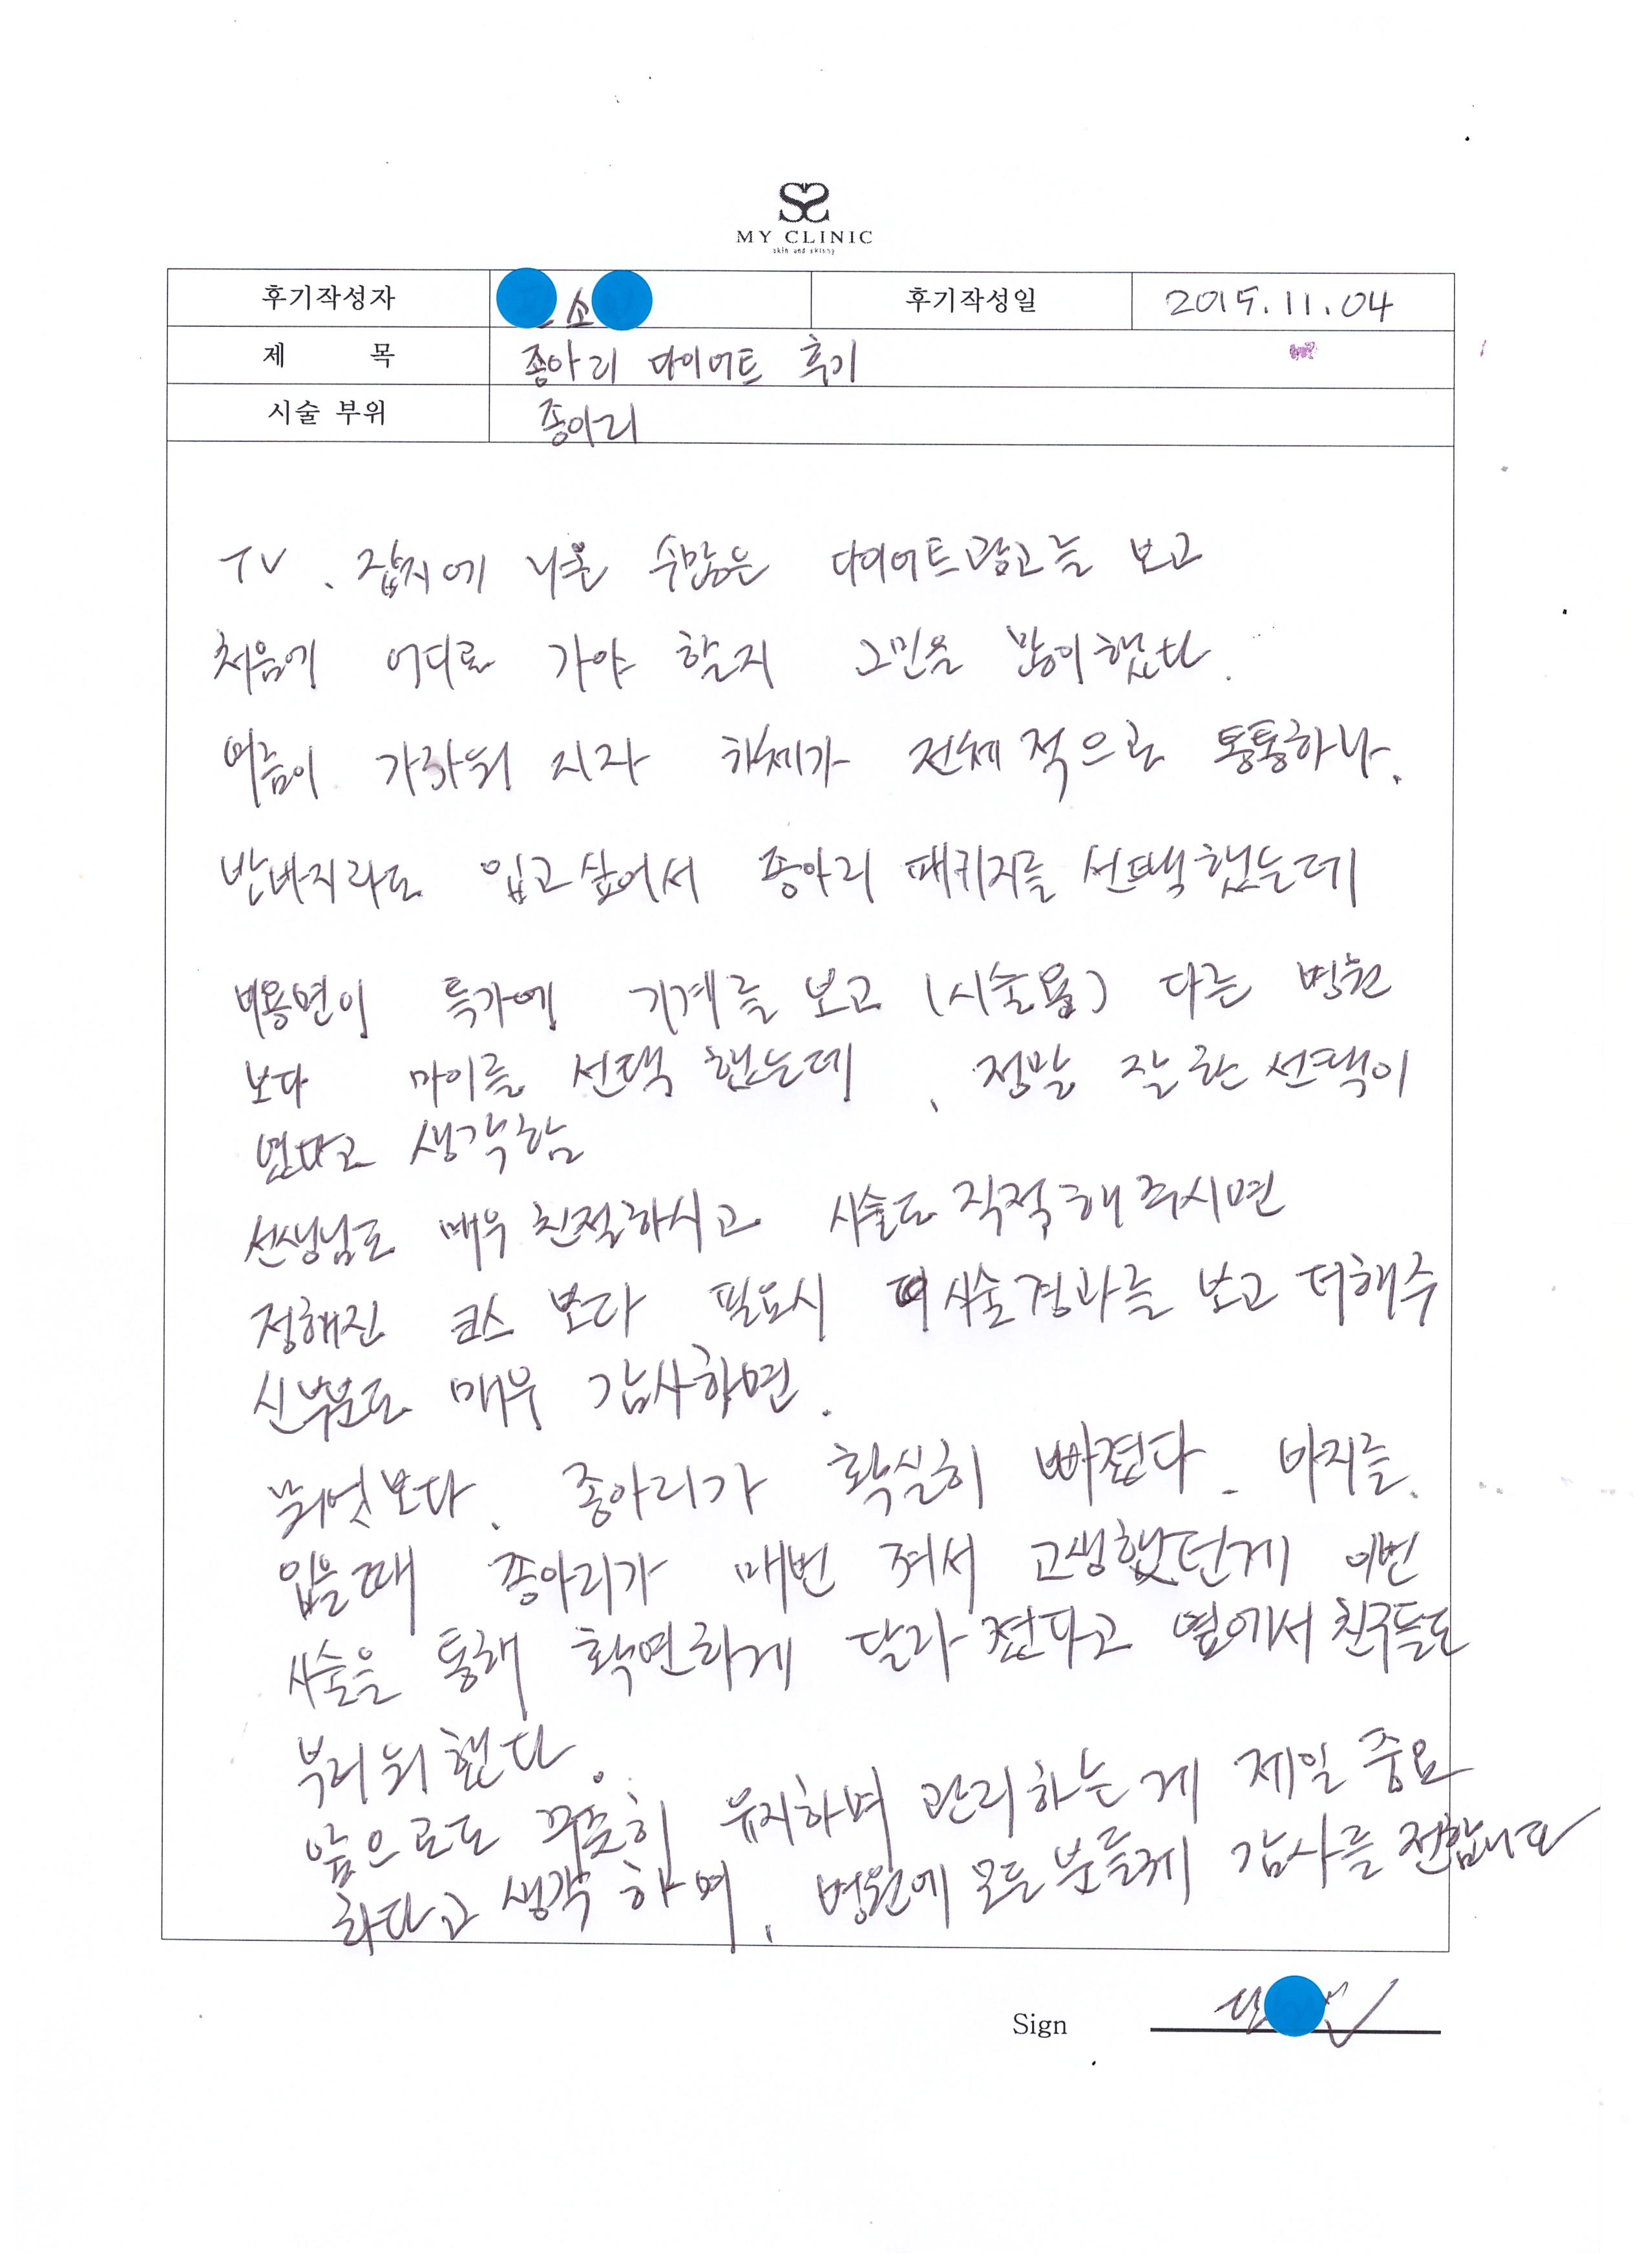 MY CLINIC
skin and skinny
후기작성자 소 후기작성일 2015.11.04
제 목 종아리 다이어트 후기
시술 부위 종아리
TV, 잡지에 나온 수많은 다이어트광고를 보고
처음에 어디로 가야 할지 고민을 많이했다.
여름이 가까워 지자 하체가 전체적으로 통통하나,
반바지라도 입고싶어서 종아리 패키지를 선택했는데
비용면이 특가에 기계를 보고 (시술용) 다른 병원
보다 마이를 선택했는데, 정말 잘한선택이
였다고 생각함
선생님도 매우친절하시고 시술도 직적해주시면
정해진 코스보다 필요시 시술경과를 보고 더해주
신부분도 매우 감사하면.
뭐엇보다, 종아리가 확실히 빠졌다. 바지를
입을때 종아리가 매번 껴서 고생했던게 이번
시술을 통해 확연하게 달라졌다고 옆에서 친구들도
부러워했다.
앞으로도 꾸준히 유지하며 관리하는게 제일 중요
하다고 생각하며, 병원에 모든분들께 감사를 전합니다
Sign